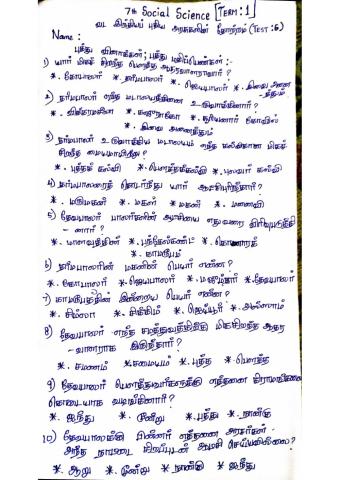 7th Social Science [TERM : 1]
வட இந்தியப் புதிய அரசுகளின் தோற்றம் (TEST : 6)
Name :
பத்து வினாக்கள்; பத்து மதிப்பெண்கள் :-
1) யார் மிகச் சிறந்த பௌத்த ஆதரவாளராவார் ?
*. கோபாலர் *. தர்மபாலர் *. ஜெயபாலர் *. இவை அனைத்தும்
2) தர்மபாலர் எந்த மடாலயத்தினை உருவாக்கினார் ?
*. விக்கிரமசீலா *. *. சூரியனார் கோவில்
*. இவை அனைத்தும்
3) தர்மபாலர் உருவாக்கிய மடாலயம் எந்த கல்விக்கான மிகச்
சிறந்த மையமாயிற்று ?
*. புத்த கல்வி *. பௌத்தக்கல்வி *. புலவர் கல்வி
4) தர்மபாலரைத் தொடர்ந்து யார் ஆட்சிபுரிந்தார் ?
*. மருமகன் *. மகள் *. மகன் *. மனைவி
5) தேவபாலர் பாலர்களின் ஆட்சியை எதுவரை விரிவுபடுத்தி
- னார் ?
*. *. புந்தேல்கண்ட் *.
*. காமரூபம்
6) தர்மபாலரின் மகனின் பெயர் என்ன ?
*. கோபாலர் *. ஜெயபாலர் *. *. தேவபாலர்
7) காமரூபத்தின் இன்றைய பெயர் என்ன ?
*. சிம்லா *. சிக்கிம் *. ஜெய்பூர் *. அஸ்ஸாம்
8) தேவபாலர் எந்த சமத்துவத்திற்கு மிகச்சிறந்த ஆதர
- வாளராக இருந்தார் ?
*. சமணம் *. சமையம் *. புத்த *. பௌத்த
9) தேவபாலர் பௌத்தருவர்களுக்கு எத்தனை கிராமங்களை
கொடையாக வழங்கினார் ?
*. ஐந்து *. மூன்று *. பத்து *. நான்கு
10) தேவபாலருக்கு பின்னர் எத்தனை அரசர்கள்
அந்த நாட்டை சிறப்புடன் ஆட்சி செய்யவில்லை ?
*. ஆறு *. மூன்று *. நான்கு *. ஐந்து